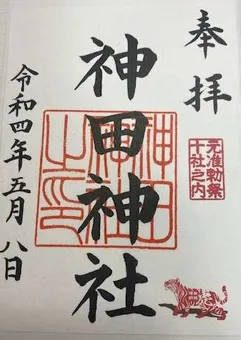 奉拝
元准勅祭
十社之内
神田神社
神田
神社
之印
令和四年五月八日